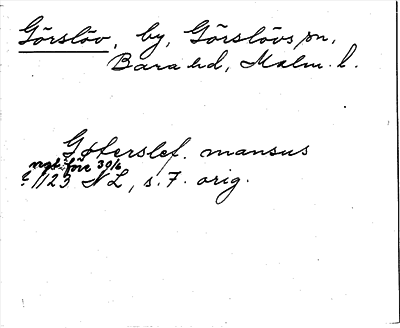 Görslöv, by, Görslövs sn,
Bara hd, Malm. l.
Gøterslef. mansus
ngt före 30/6
1123 NL, s. 7. orig.